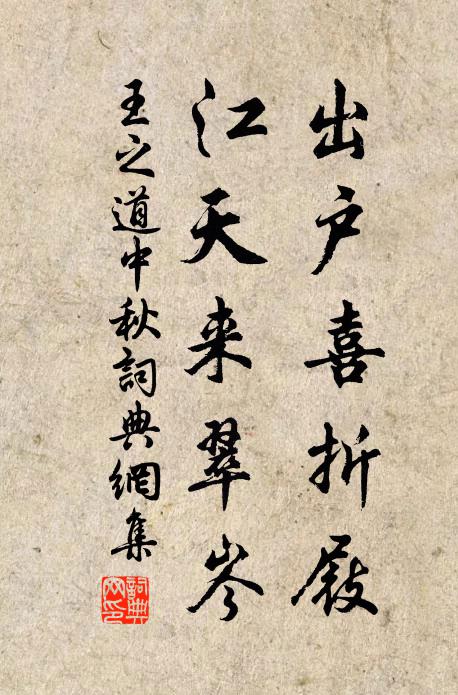 出户喜折屐
江天来翠岑
王之道中秋詞典網集
詞典网印